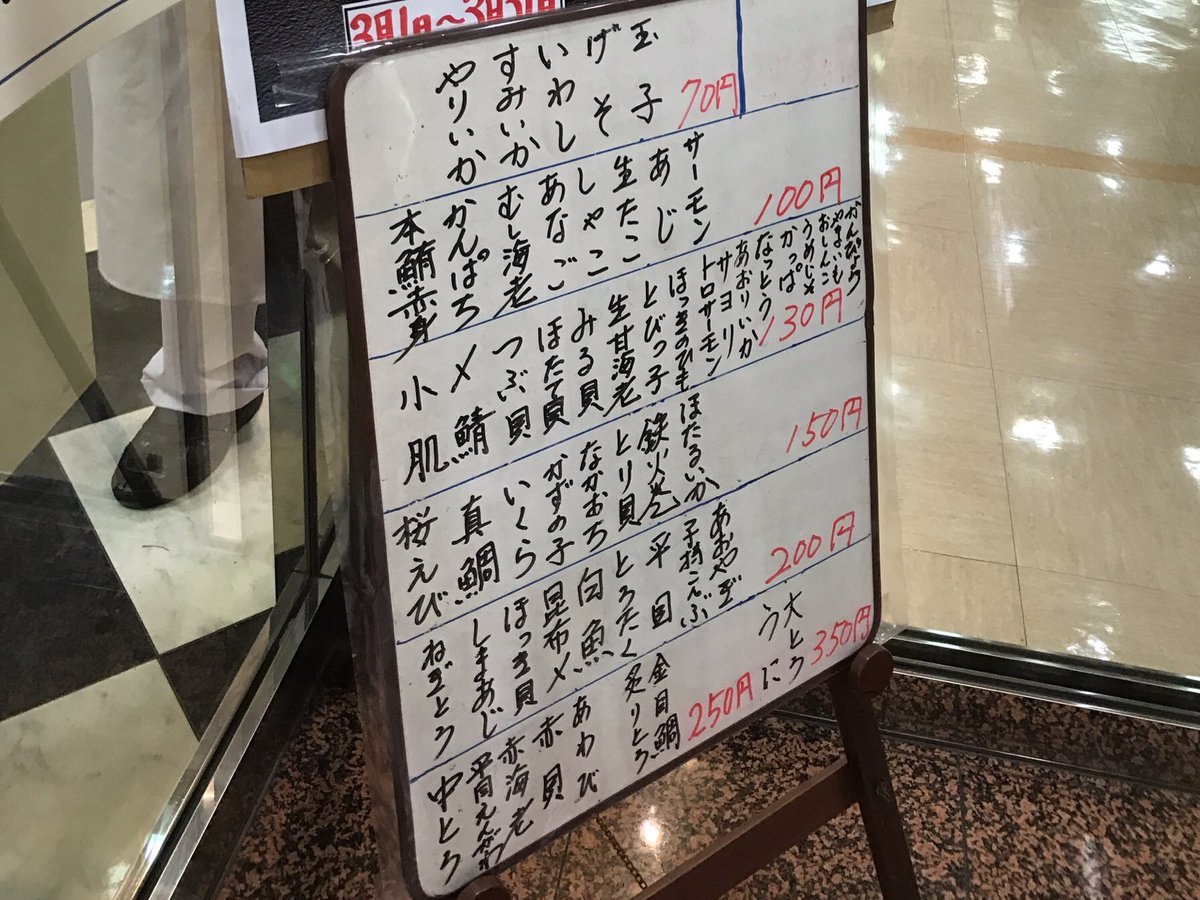 3月1日~3月31日
70円
玉子
げそ
いわし
すみいか
やりいか
100円
サーモン
あじ
生たこ
しゃこ
あなご
むし海老
かんぱち
本鮪赤身
130円
がんぴょう
やまいも
おしんこ
うめじそ
かっぱ
なっとう
あおりいか
サヨリ
トロサーモン
ほっきのひも
とびっ子
生甘海老
みる貝
ほたて貝
つぶ貝
〆鯖
小肌
150円
ほたるいか
鉄火巻
とり貝
なかおち
かずの子
いくら
真鯛
桜えび
200円
あおやぎ
子持こんぶ
平目
とろたく
白魚
昆布〆
ほっき貝
しまあじ
ねぎとろ
350円
大とろ
うに
250円
金目鯛
炙りとろ
あわび
赤貝
赤海老
平目えんがわ
中とろ